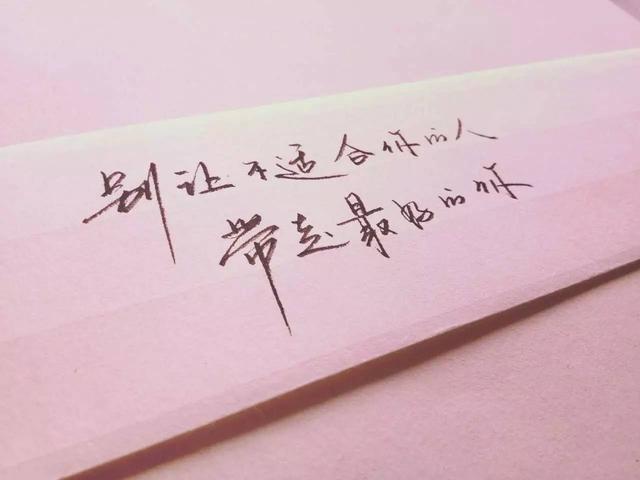 别让不适合你的人
带走最好的你